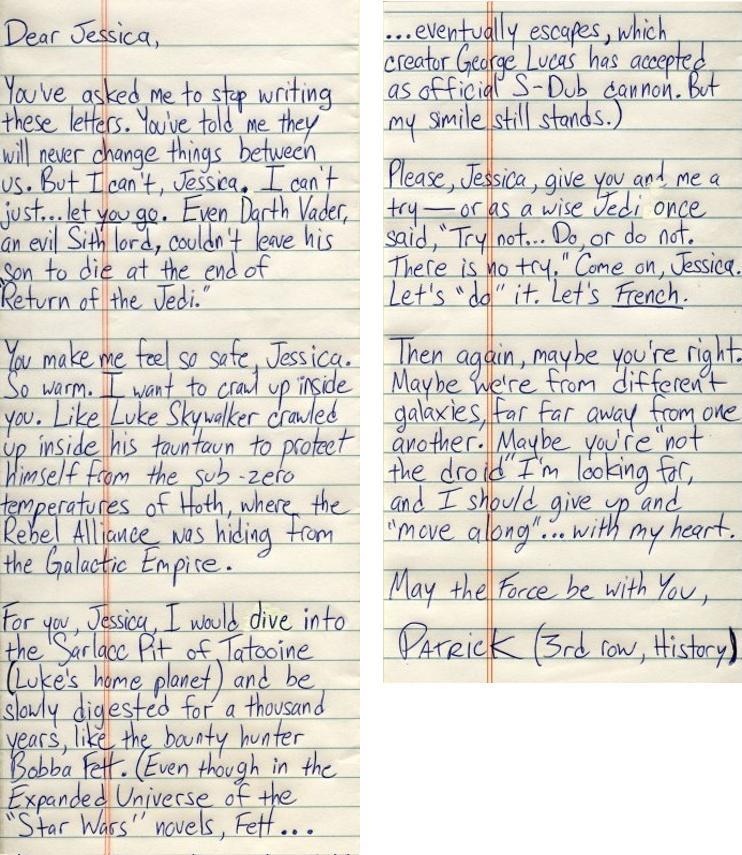 Dear Jessica,
You've asked me to stop writing
these letters. You've told me they
will never change things between
us. But I can't, Jessica. I can't
just...let you go. Even Darth Vader,
an evil Sith lord, couldn't leave his
son to die at the end of
"Return of the Jedi."
You make me feel so safe, Jessica.
So warm. I want to crawl up inside
you. Like Luke Skywalker crawled
up inside his tauntaun to protect
himself from the sub-zero
temperatures of Hoth, where the
Rebel Alliance was hiding from
the Galactic Empire.
For you, Jessica, I would dive into
the Sarlacc Pit of Tatooine
(Luke's home planet) and be
slowly digested for a thousand
years, like the bounty hunter
Bobba Fett. (Even though in the
Expanded Universe of the
"Star Wars" novels, Fett...
...eventually escapes, which
creator George Lucas has accepted
as official S-Dub cannon. But
my simile still stands.)
Please, Jessica, give you and me a
try—or as a wise Jedi once
said, "Try not... Do, or do not.
There is no try." Come on, Jessica.
Let's "do" it. Let's French.
Then again, maybe you're right.
Maybe we're from different
galaxies, far far away from one
another. Maybe you're "not
the droid" I'm looking for,
and I should give up and
"move along"... with my heart.
May the Force be with You,
PATRICK (3rd row, History)